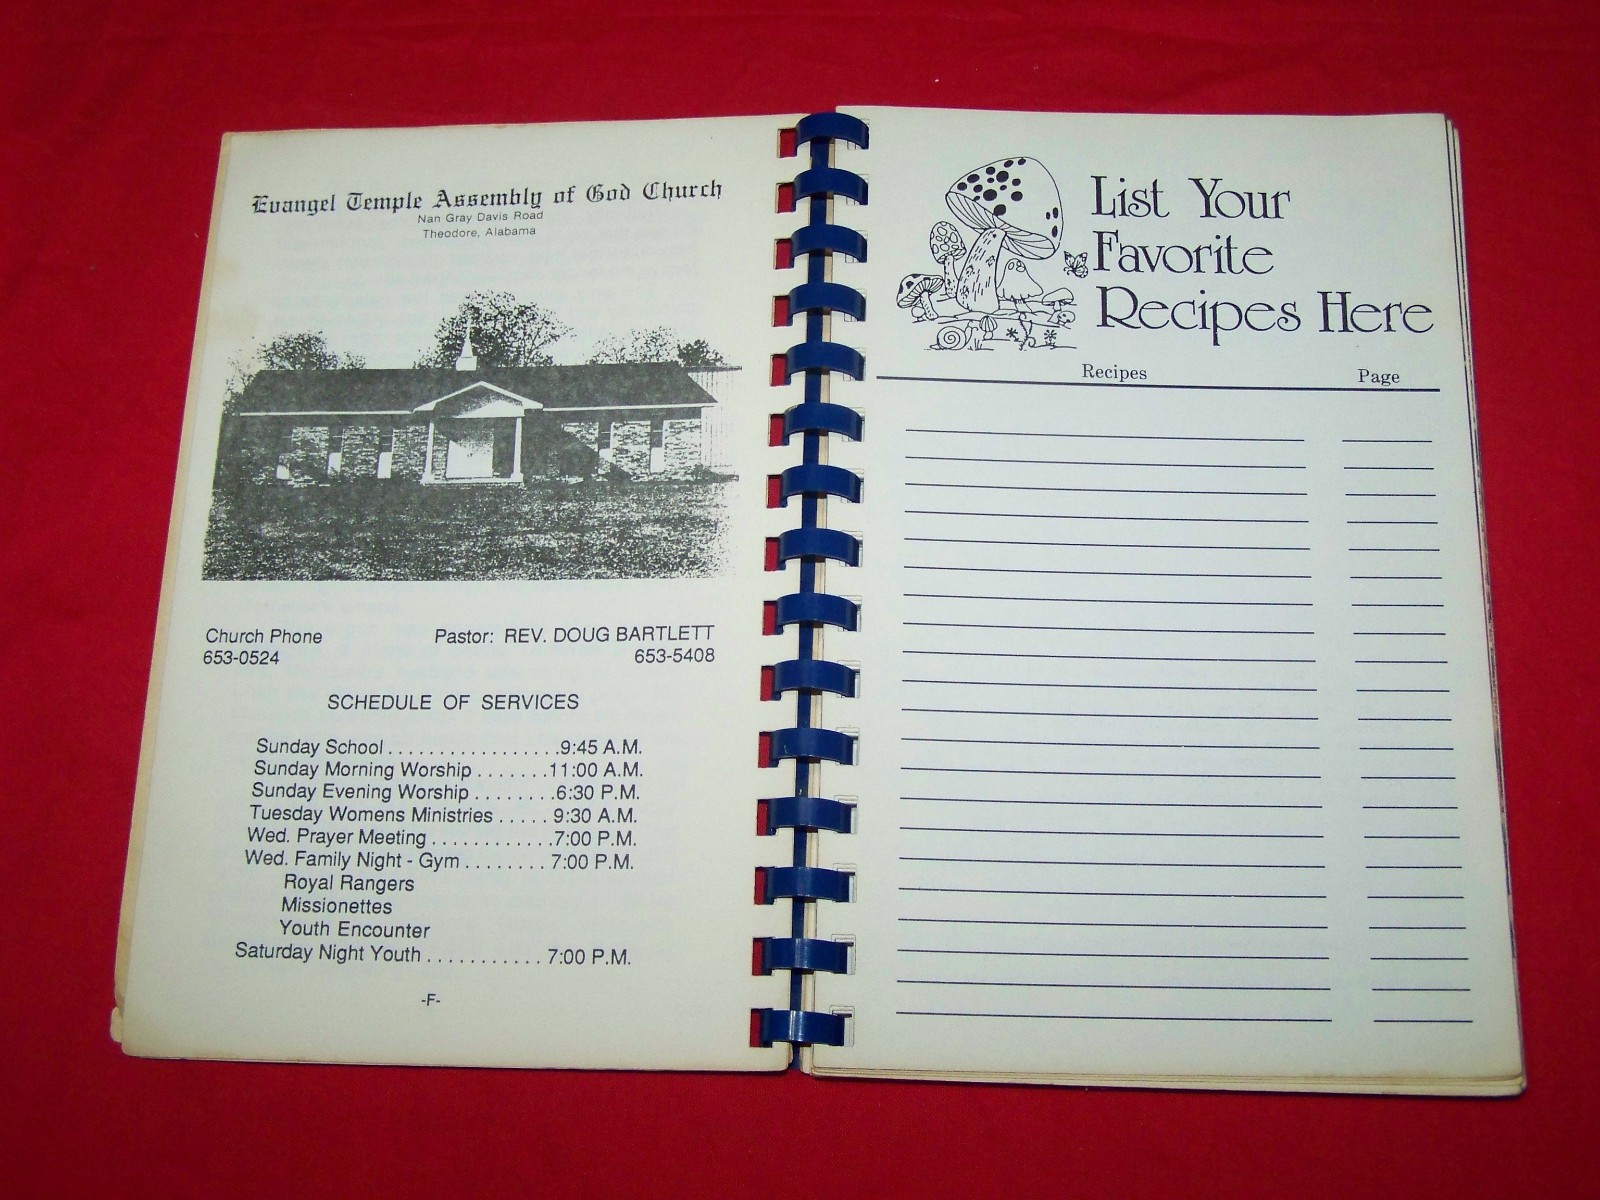 Evangel Temple Assembly of God Church
Nan Gray Davis Road
Theodore, Alabama
Church Phone
653-0524
Pastor: REV. DOUG BARTLETT
653-5408
SCHEDULE OF SERVICES
Sunday School . . . . . . . . . . . . . . . . . 9:45 A.M.
Sunday Morning Worship . . . . . . . 11:00 A.M.
Sunday Evening Worship . . . . . . . . 6:30 P.M.
Tuesday Womens Ministries . . . . . 9:30 A.M.
Wed. Prayer Meeting . . . . . . . . . . . . 7:00 P.M.
Wed. Family Night - Gym . . . . . . . . 7:00 P.M.
Royal Rangers
Missionettes
Youth Encounter
Saturday Night Youth . . . . . . . . . . . 7:00 P.M.
-F-
List Your
Favorite
Recipes Here
Recipes Page